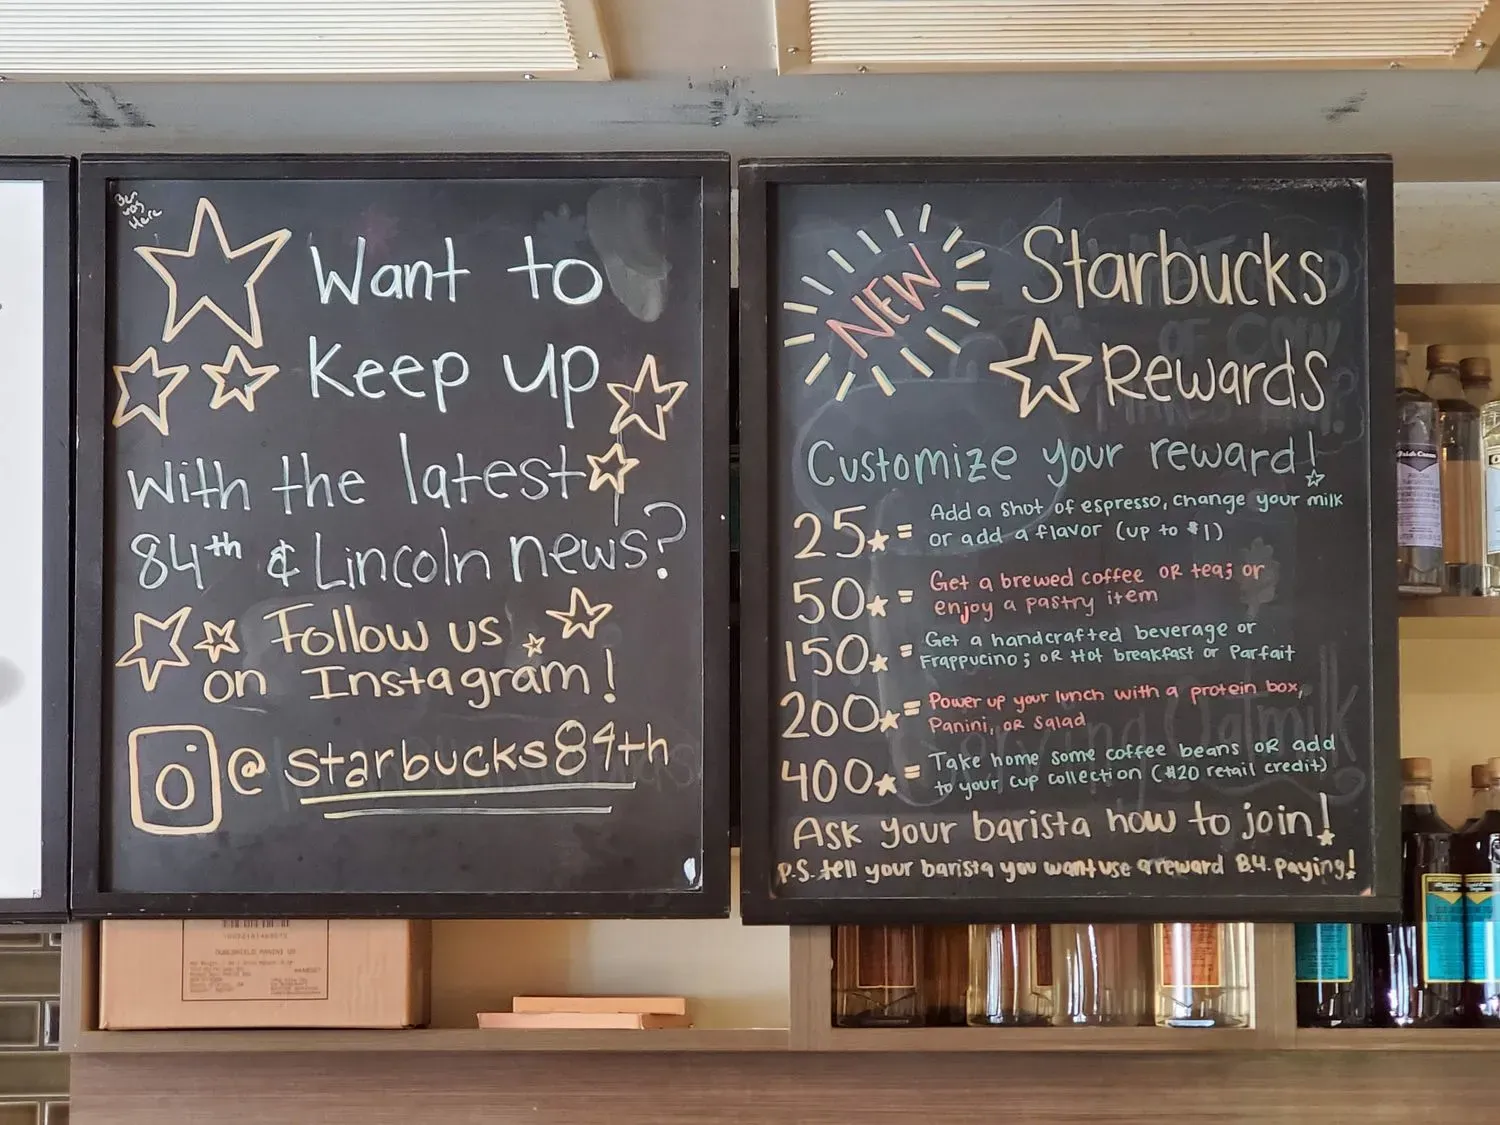 Ben
was
Here
Want to
Keep up
With the latest
84th & Lincoln news?
Follow us
on Instagram!
@starbucks84th
NEW
Starbucks
Rewards
Customize your reward!
25★= Add a shot of espresso, change your milk
or add a flavor (up to $1)
50★= Get a brewed coffee OR tea; or
enjoy a pastry item
150★= Get a handcrafted beverage or
Frappuccino; OR Hot breakfast or Parfait
200★= Power up your lunch with a protein box,
Panini, OR Salad
400★= Take home some coffee beans OR add
to your cup collection ($20 retail credit)
Ask your barista how to join!
P.S. tell your barista you want use a reward B.4. paying!